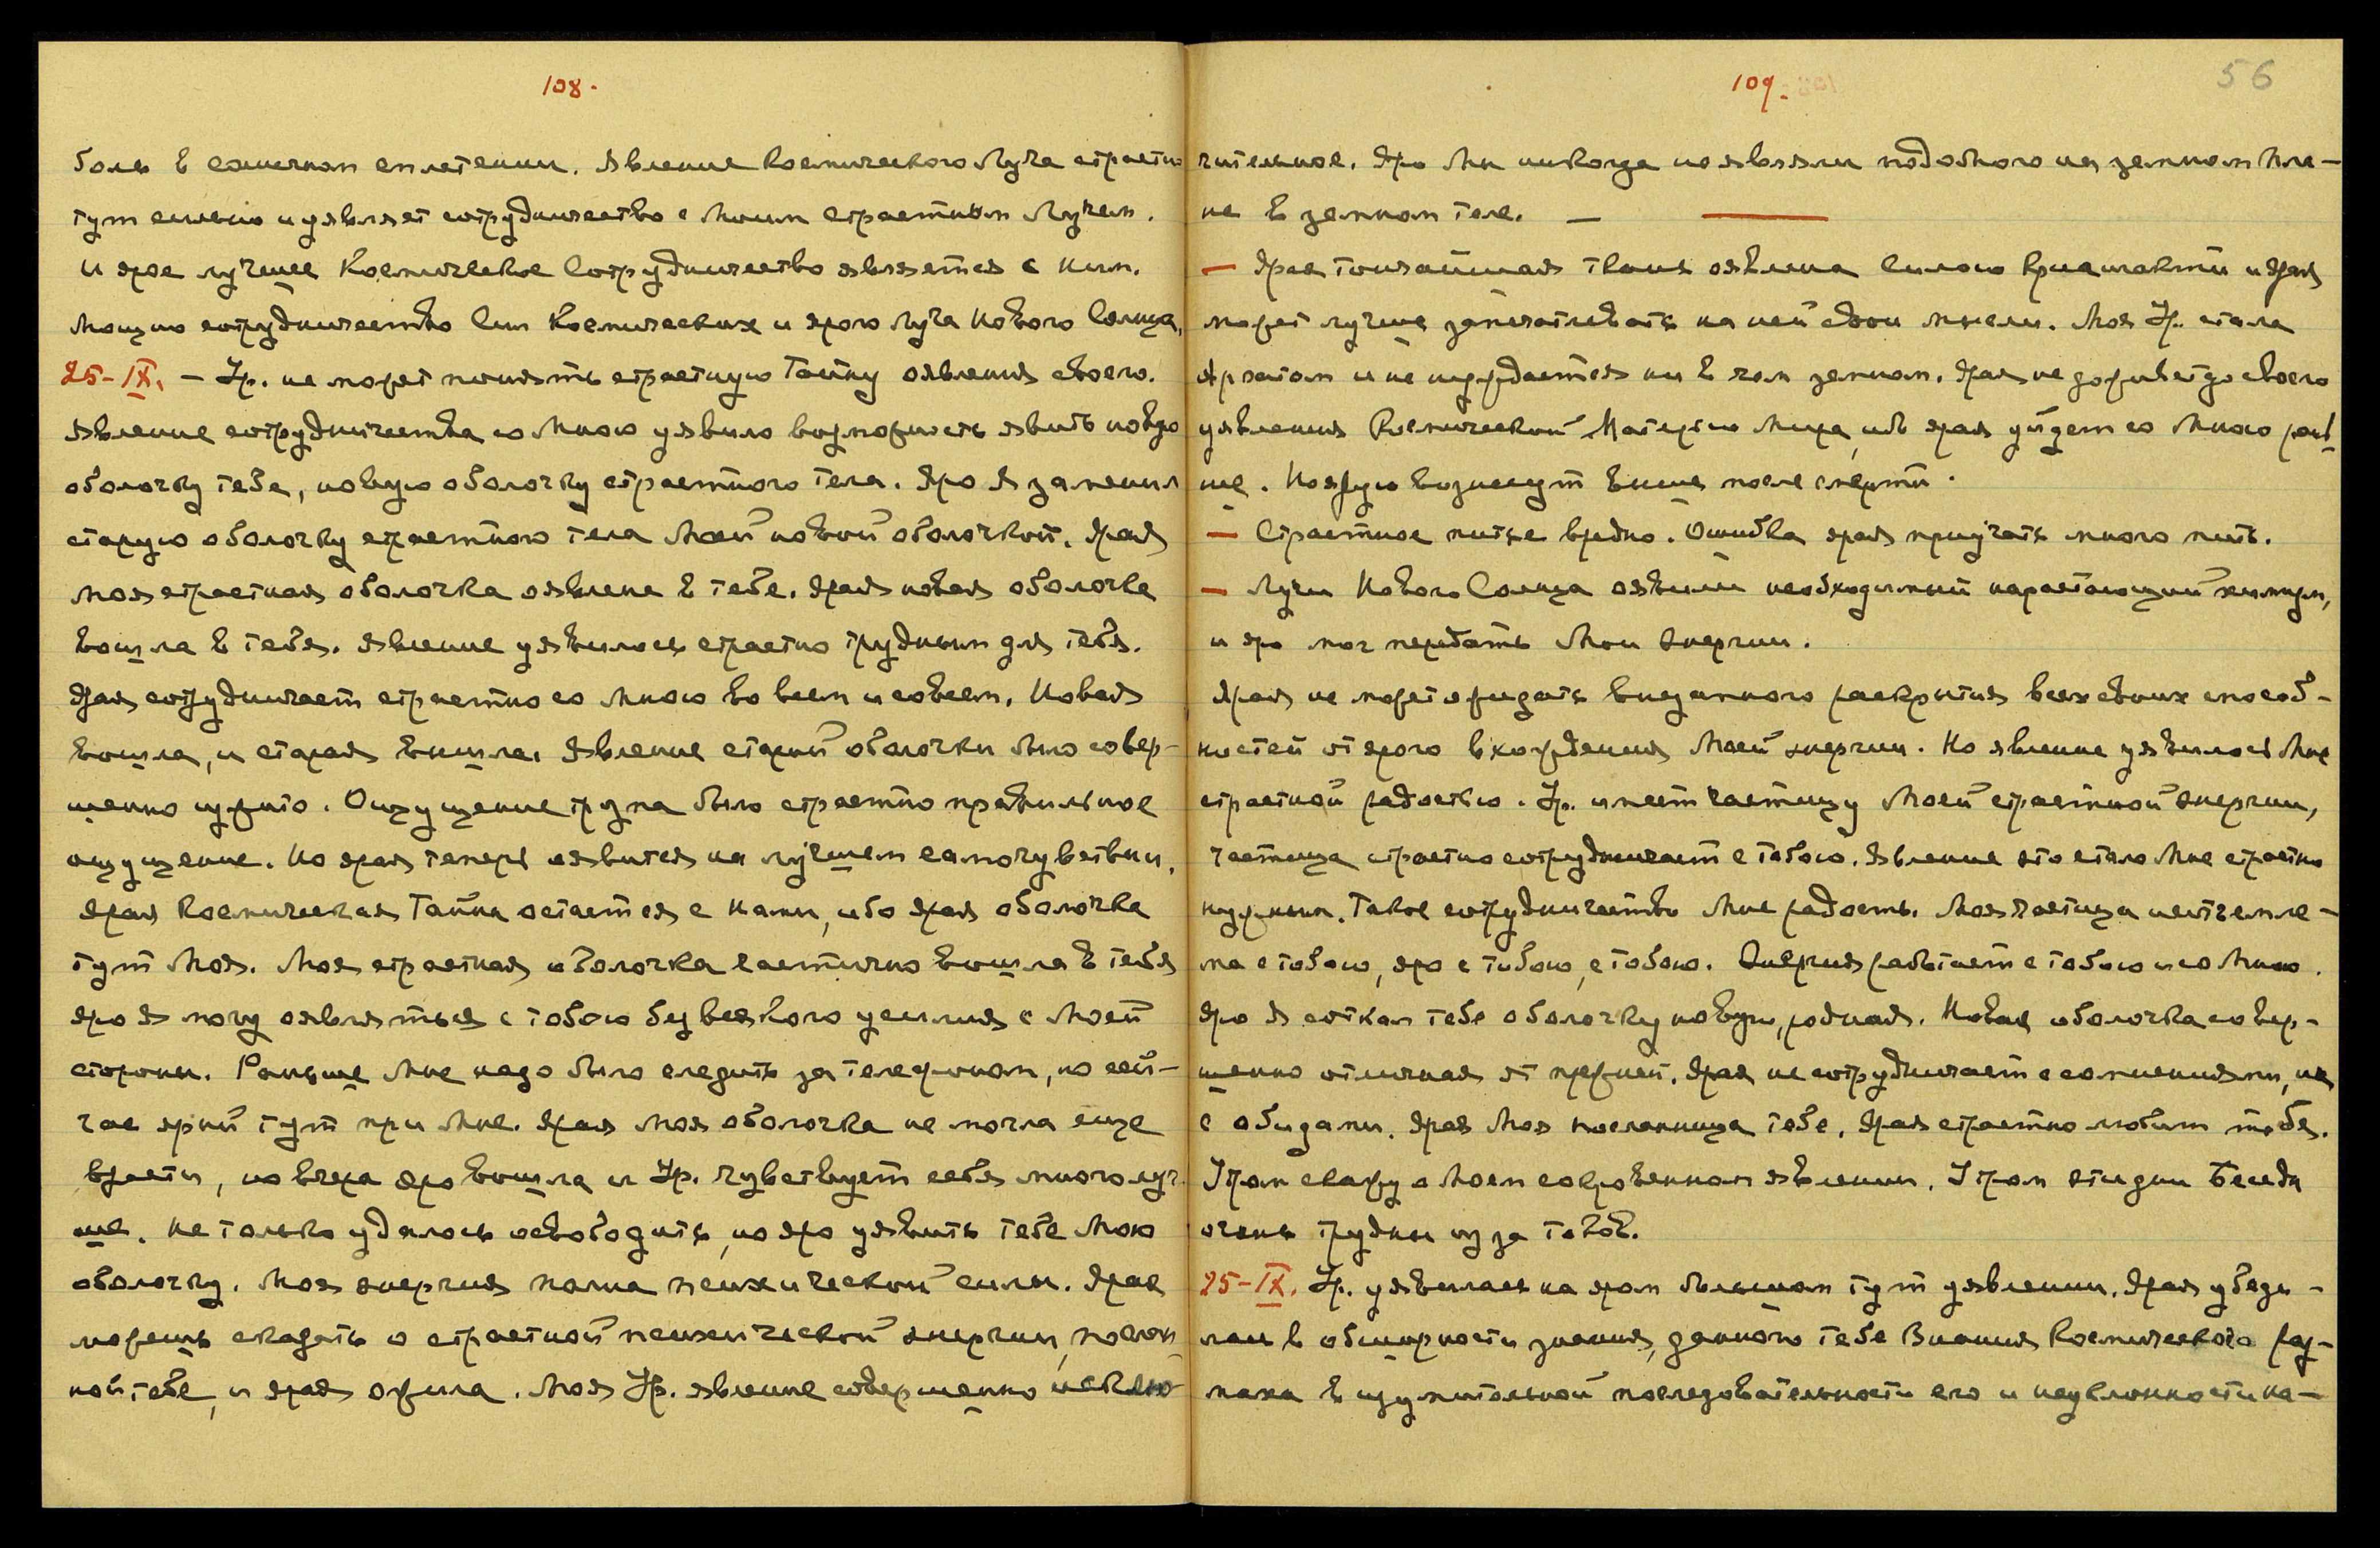 108.
боль в солнечном сплетении. Явление Космического Луча страстно
тут сильно и уявляет сотрудничество с Моим страстным Лучем.
И ярое лучшее Космическое Сотрудничество является с Ним.
Мощно сотрудничество Сил Космических и ярого Луча Нового Солнца.
25-IX. — Ур. не может понять страстную Тайну оявления своего.
Явление сотрудничества со Мною уявило возможность явить новую
оболочку тебе, новую оболочку страстного тела. Яро Я заменил
старую оболочку страстного тела Моей новой оболочкой. Ярая
Моя страстная оболочка оявлена в тебе. Ярая новая оболочка
вошла в тебя. Явление уявилось страстно трудным для тебя.
Ярая сотрудничает страстно со Мною во всем и совсем. Новая
вошла, и старая вышла. Явление старой оболочки было совер-
шенно изжито. Ощущение трупа было страстно правильное
ощущение. Но ярая теперь оявится на лучшем самочувствии.
Ярая Космическая Тайна остается с Нами, ибо ярая оболочка
тут Моя. Моя страстная оболочка частично вошла в тебя
яро Я могу оявляться с тобою без всякого усилия с Моей
стороны. Раньше Мне надо было следить за телефоном, но сей-
час ярый тут при Мне. Ярая Моя оболочка не могла еще
врасти, но вчера яро вошла и Ур. чувствует себя много луч-
ше. Не только удалось освободить, но яро уявить тебе Мою
оболочку. Моя энергия полна психической силы. Ярая
можешь сказать о страстной психической энергии, послан-
ной тебе, и ярая ожила. Моя Ур. явление совершенно исклю-
109.
56
чительное. Яро Мы никогда не являли подобного на земном пла-
не в земном теле. —
— Ярая тончайшая ткань оявлена силою Криашакти и ярая
может лучше запечатлевать на ней свои мысли. Моя Ур. стала
Архатом и не нуждается ни в чем земном. Ярая не доживет до своего
уявления Космической Матерью Мира, ибо ярая уйдет со Мною рань-
ше. Но ярую вознесут выше после смерти.
— Страстное питье вредно. Ошибка ярая приучать много пить.
— Лучи Нового Солнца оявили необходимый нарастающий химизм,
и яро мог передать Мои энергии.
Ярая не может ожидать внезапного раскрытия всех своих способ-
ностей от ярого вхождения Моей энергии. Но явление уявилось Мне
страстной радостью. Ур. имеет частицу Моей страстной энергии,
частица страстно сотрудничает с тобою. Явление это стало Мне страстно
нужным. Такое сотрудничество Мне радость. Моя частица неотъемле-
ма с тобою, яро с тобою, с тобою. Энергия работает с тобою и со Мною.
Яро Я соткал тебе оболочку новую, родная. Новая оболочка совер-
шенно отличная от прежней. Ярая не сотрудничает с сомнениями, ни
с обидами. Ярая Моя посланница тебе. Ярая страстно любит тебя.
Утром скажу о Моем сокровенном явлении. Утром эти дни Беседы
очень трудны из за токов.
25-IX. Ур. уявилась на яром большом тут уявлении. Ярая убеди-
лась в обширности знания, данного тебе Знания Космического раз-
маха в изумительной последовательности его и неуклонности на-